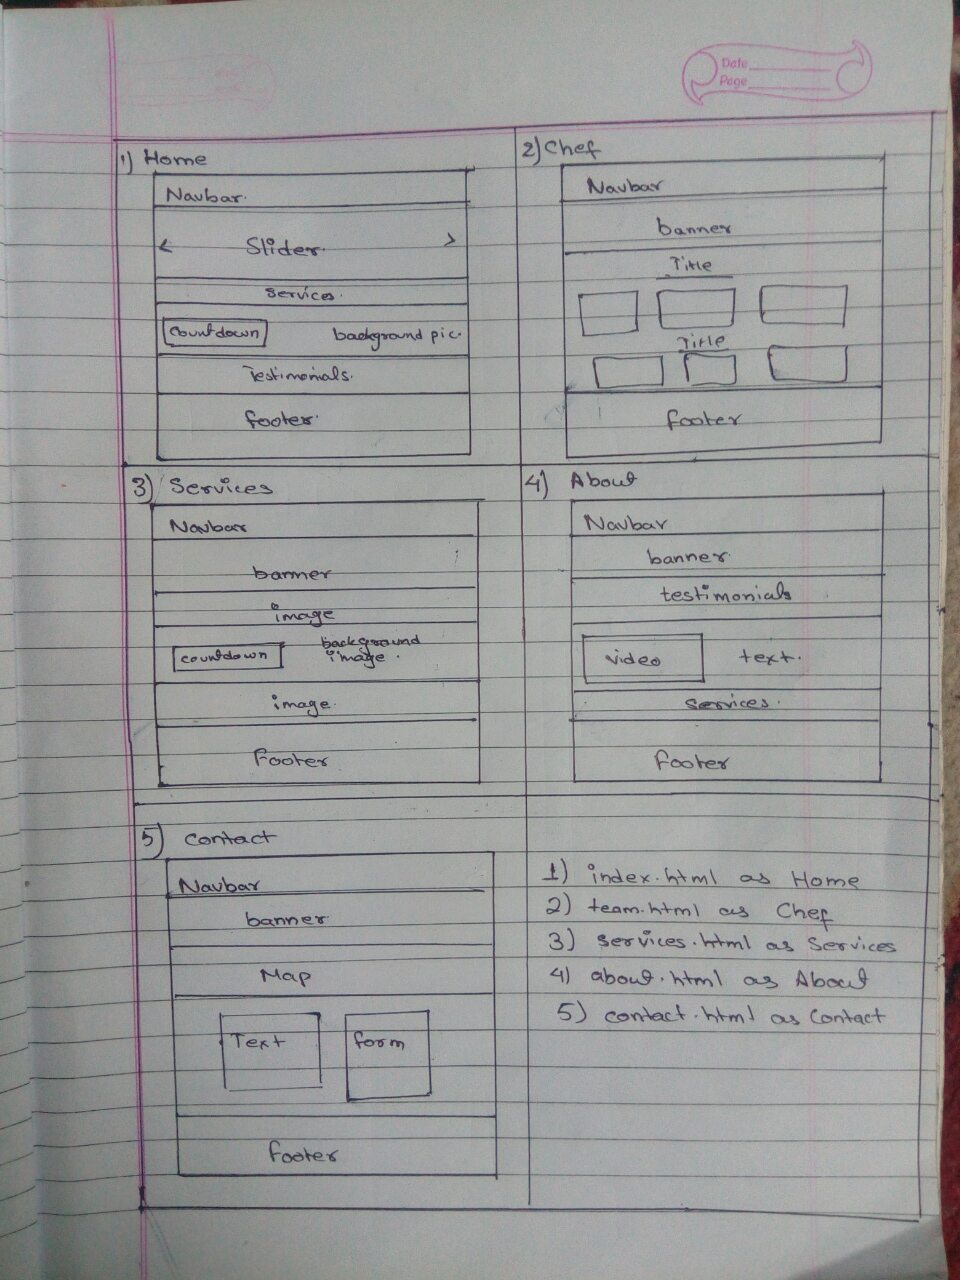 Date
Page
1) Home
Navbar.
< Slider. >
services.
countdown background pic.
Testimonials.
footer.
2) Chef
Navbar
banner
Title
Title
footer
3) Services
Navbar
banner
image
countdown background image.
image.
Footer
4) About
Navbar
banner.
testimonials
video text.
Services.
footer
5) Contact
Navbar
banner.
Map
Text form
footer
1) index.html as Home
2) team.html as Chef
3) services.html as Services
4) about.html as About
5) contact.html as Contact